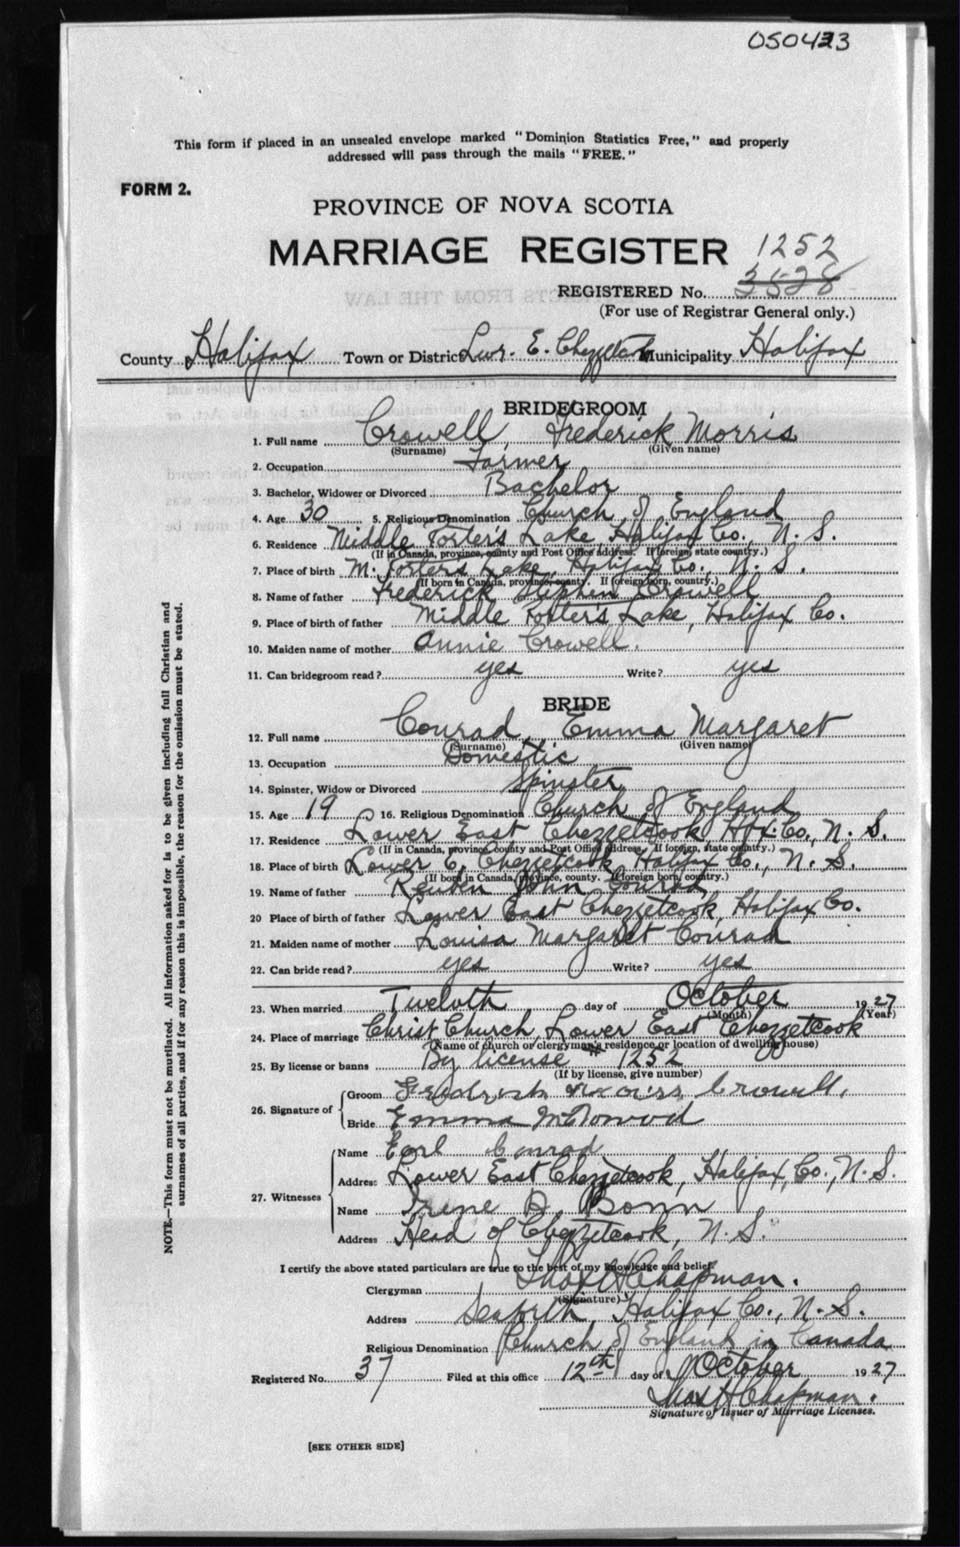 050433
This form if placed in an unsealed envelope marked "Dominion Statistics Free," and properly
addressed will pass through the mails "FREE."
FORM 2.
PROVINCE OF NOVA SCOTIA
MARRIAGE REGISTER 1252
REGISTERED No. 3528
(For use of Registrar General only.)
County of Halifax Town or District Lwr. E. Chezzetcook Municipality Halifax
BRIDEGROOM
1. Full name Crowell, Frederick Morris
(Surname) (Given name)
2. Occupation Farmer
3. Bachelor, Widower or Divorced Bachelor
4. Age 30 5. Religious Denomination Church of England
6. Residence Middle Porter's Lake, Halifax Co., N. S.
(If in Canada, province, county and Post Office address. If foreign, state country.)
7. Place of birth M. Porter's Lake, Halifax Co., N. S.
(If born in Canada, province, county. If foreign born, country.)
8. Name of father Frederick Crowell
9. Place of birth of father Middle Porter's Lake, Halifax Co.
10. Maiden name of mother Annie Crowell.
11. Can bridegroom read? yes Write? yes
BRIDE
12. Full name Conrad, Emma Margaret
(Surname) (Given name)
13. Occupation Domestic
14. Spinster, Widow or Divorced Spinster
15. Age 19 16. Religious Denomination Church of England
17. Residence Lower East Chezzetcook, Hfx. Co., N. S.
(If in Canada, province, county and Post Office address, If foreign, state country.)
18. Place of birth Lower E. Chezzetcook, Halifax Co., N. S.
(If born in Canada, province, county. If foreign born, country.)
19. Name of father Reuben John Conrad
20 Place of birth of father Lower East Chezzetcook, Halifax Co.
21. Maiden name of mother Louisa Margaret Conrad
22. Can bride read? yes Write? yes
23. When married Twelvth day of October 1927
(Month) (Year)
24. Place of marriage Christ Church, Lower East Chezzetcook
(Name of church or clergyman's residence or location of dwelling house)
25. By license or banns By license # 1252
(If by license, give number)
26. Signature of
Groom Crowell.
Bride Emma
27. Witnesses
Name Earl Conrad
Address Lower East Chezzetcook, Halifax, Co., N. S.
Name Irene B. Bonn
Address Head of Chezzetcook, N. S.
I certify the above stated particulars are true to the best of my knowledge and belief.
Clergyman Thos H Chapman.
(Signature)
Address Seaforth, Halifax Co., N. S.
Religious Denomination Church of England in Canada
Registered No. 37 Filed at this office 12th day of October 1927
Thos H Chapman.
Signature of Issuer of Marriage Licenses.
[SEE OTHER SIDE]
NOTE.—This form must not be mutilated. All information asked for is to be given including full Christian and
surnames of all parties, and if for any reason this is impossible, the reason for the omission must be stated.